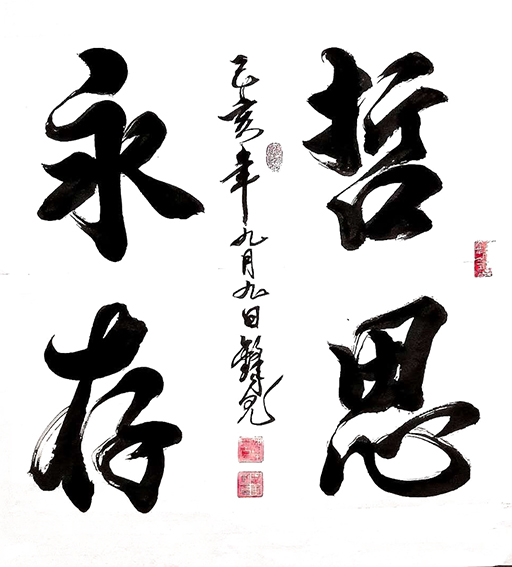 哲思
永存
己亥年九月九日